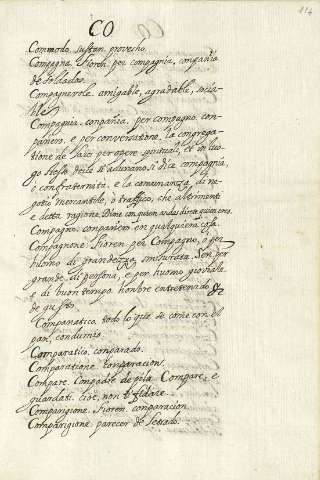 114
CO
Commodo. sustan. provecho.
Compagna. Fioren. per compagnia, conpañia
de soldados.
Compagnevole. amigable, agradable, socia-
ble.
Compagnia. conpañia. per compagno, con-
pañero. e per conversatione. la congrega-
tione de laici per opere spirituali, et il luo-
go stesso dove si adunano si dice compagnia,
o confraternita. e la comunanza, di ne-
gotio mercantile, o traffico, che altrimenti
e detta ragione. Dime con quien andas direte quien eres.
Compagno. conpañero en qualquiera cosa.
Compagnone. Fioren. per Compagno, o gen-
tilomo di grandezza smisurata. Ser. per
grande di persona, e per huomo gioviale
e di buon tempo. honbre entretenido &
de gusto.
Companatico. todo lo que se come con el
pan, condumio.
Comparatico. conparado.
Comparatione. conparacion.
Compare. Compadre de pila. Compare, e
guardati. cioè, non ti fidare.
Comparigione. Fioren. conparacion.
Comparigione. parecer de Letrado.